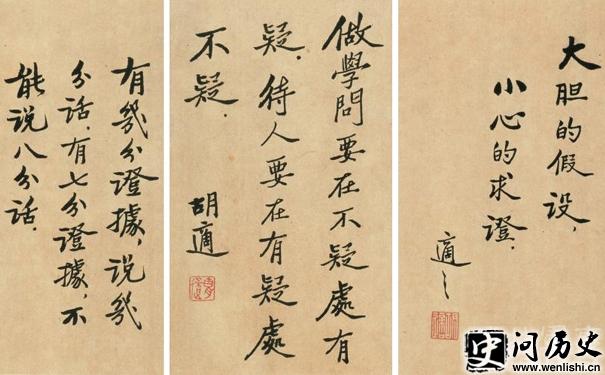 大胆的假设，
小心的求證.
適之
做學問要在不疑處有
疑.待人要在有疑處
不疑.
胡適
有幾分證據，說幾
分话.有七分證據，不
能说八分话.
问历史
www.wenlishi.cn